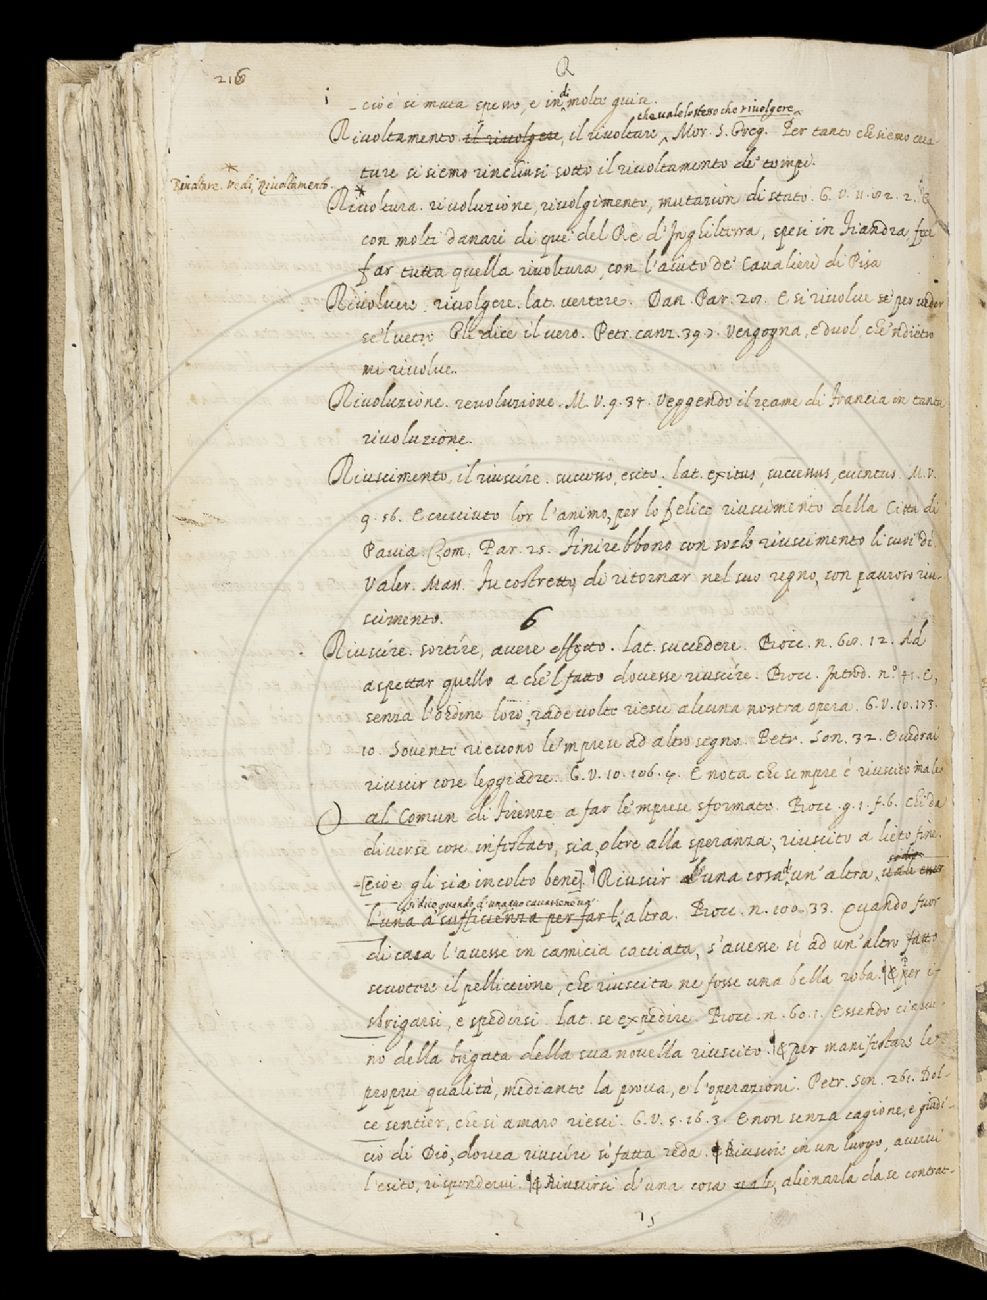 216
R
- cioè si muta spesso, e in di molte guise.
che vale lo stesso che rivolgere
Rivoltamento il rivolgere, il rivoltare. Mor. S. Greg. Per tanto che siemo crea
ture si siemo rinchiusi sotto il rivoltamento de' tempi.
Rivoltare. vedi, Rivoltamento.
Rivoltura. rivoluzione, rivolgimento, mutazion di stato. G. V. 11. 102. 2. E
con molti danari di que' del Re d'Inghilterra, spesi in Fiandra, fece
far tutta quella rivoltura, con l'aiuto de' Cavalieri di Pisa
Rivolvere. rivolgere. lat. vertere. Dan. Par. 28. E si rivolve se per veder
se 'l vetro Gli dice il vero. Petr. canz. 39. 7. Vergogna, e duol che 'ndietro
mi rivolve.
Rivoluzione. revoluzione. M. V. 9. 37. Veggendo il reame di Francia in tanta
rivoluzione.
Riuscimento, il riuscire. successo, esito. lat. exitus, successus, eventus. M. V.
9. 56. E cresciuto lor l'animo, per lo felice riuscimento della Città di
Pavia. Com. Par. 25. Finirebbono con sozzo riuscimento li suoi dì.
Valer. Mass. Fu costretto di ritornar nel suo regno, con pauroso riu-
scimento.
6
Riuscire. sortire, avere effetto. lat. succedere. Bocc. n. 68. 12. Ad
aspettar quello a che 'l fatto dovesse riuscire. Bocc. Introd. n.° 41. E,
senza l'ordine loro, rade volte riesce alcuna nostra opera. G. V. 10. 173.
10. Sovente riescono le 'mprese ad altro segno. Petr. Son. 32. E vedrai
riuscir cose leggiadre. G. V. 10. 106. 4. E nota che sempre è riuscito male
al Comun di Firenze a far le 'mprese sformate. Bocc. g. 1. f. 6. Che da
diverse cose infestato, sia, oltre alla speranza, riuscito a lieto fine.
[cioè gli sia incolto bene] Riuscir d'una cosa, un' altra, vale esser
si dice quando d'una se ne cava
l'una a sufficienza per far l'altra. Bocc. n. 100. 33. Quando fuor
di casa l'avesse in camicia cacciata, s'avesse sì ad un' altro fatto
scuotere il pelliccione, che riuscita ne fosse una bella roba. ¶ per is-
sbrigarsi, e spedirsi. Lat. se expedire. Bocc. n. 60. 1. Essendo ciascu-
no della brigata della sua novella riuscito. ¶ per manifestare le
proprie qualità, mediante la prova, e l'operazioni. Petr. Son. 261. Dol-
ce sentier, che sì amaro riesci. G. V. 5. 16. 3. E non senza cagione, e giudi-
cio di Dio, dovea riuscire sì fatta reda. ¶ Riuscire in un luogo, avervi
l'esito, rispondervi. ¶ Riuscirsi d'una cosa vale, alienarla da se contrat-